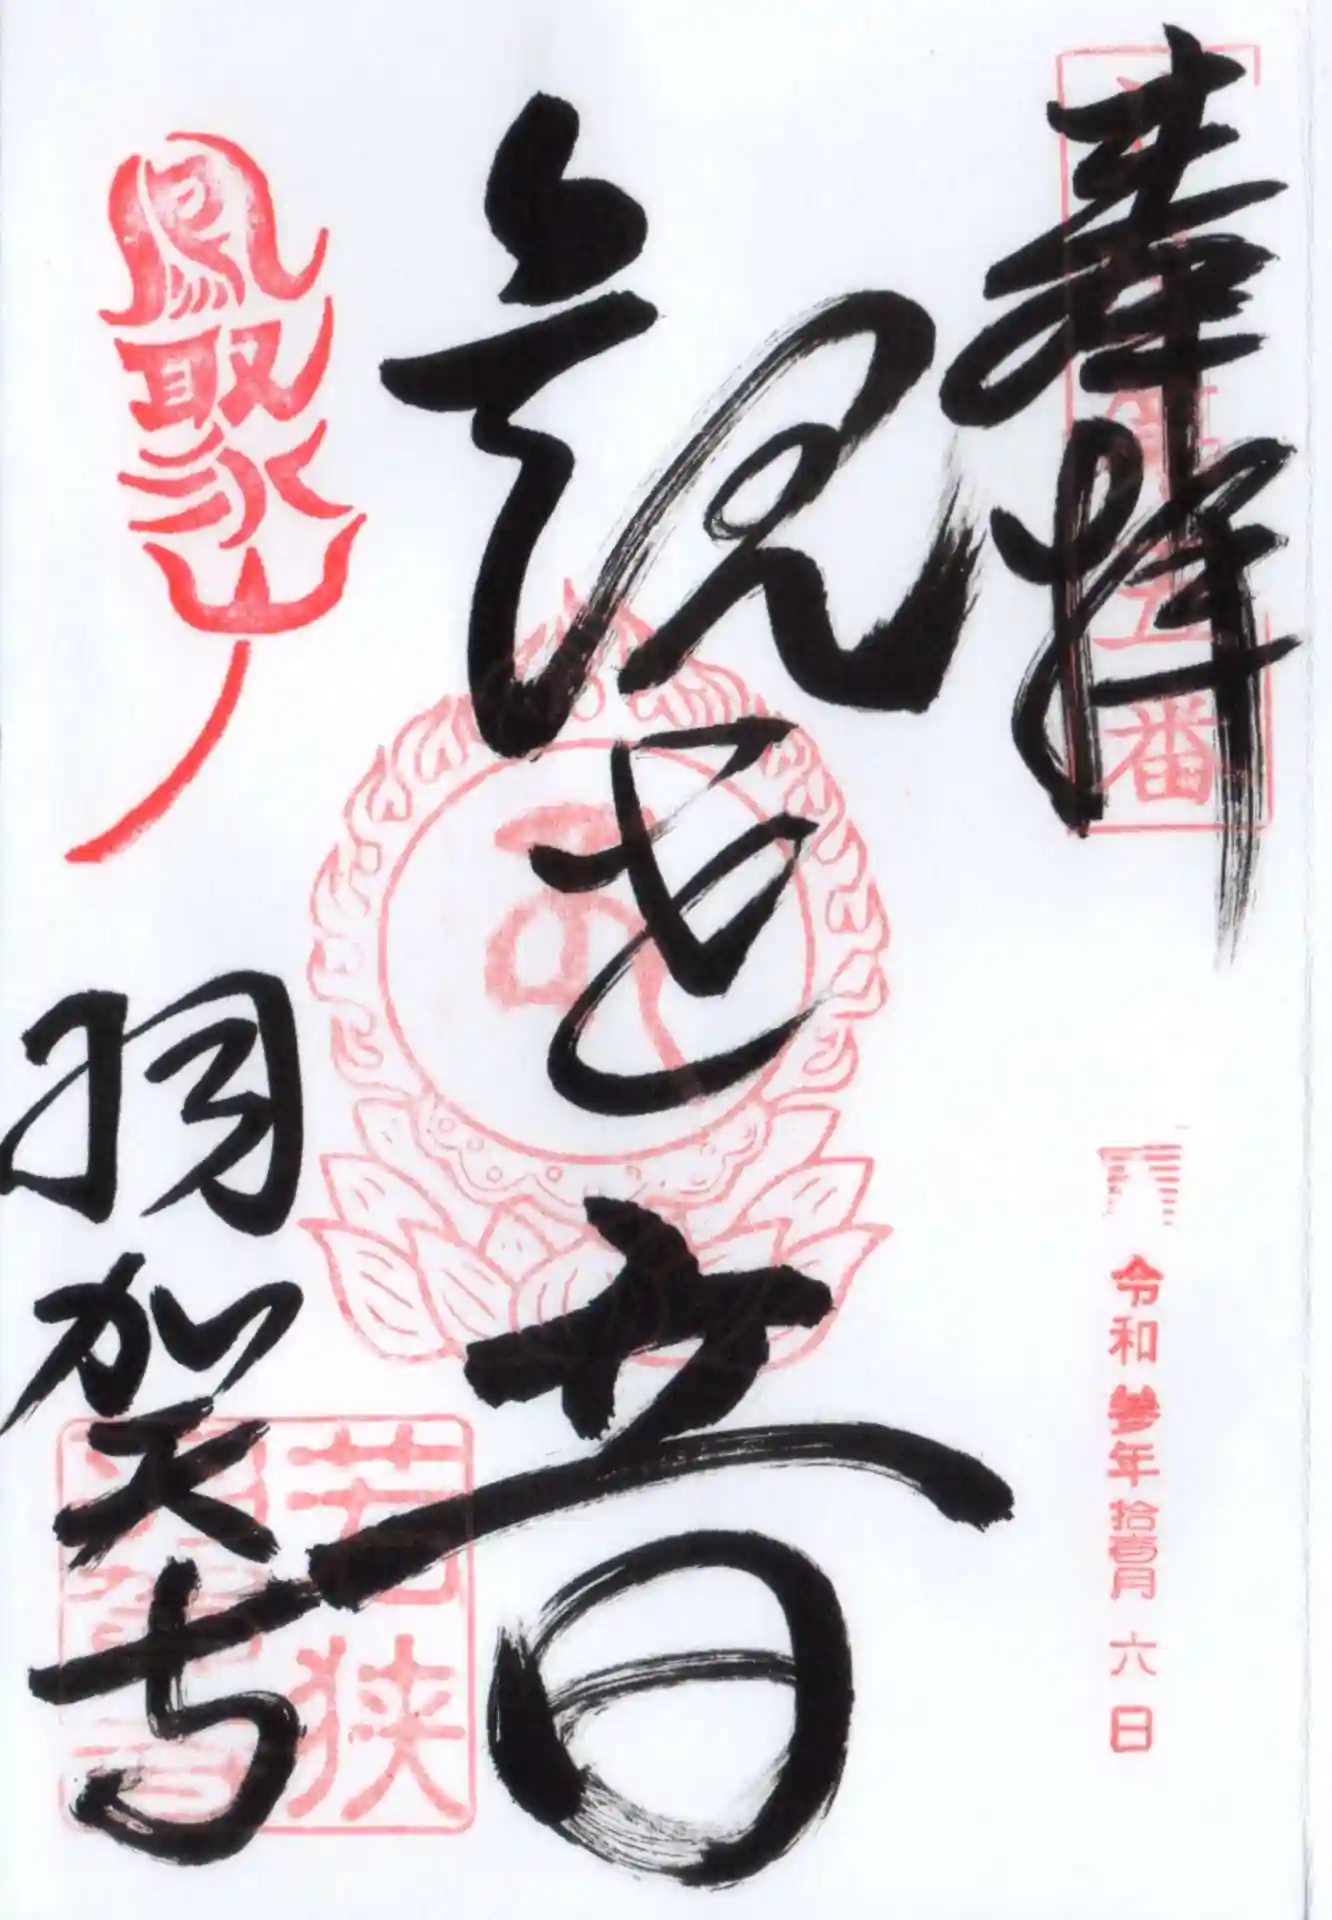 奉拝
番
令和参年拾壱月六日
観世音
鳳聚山
羽賀寺
若狭